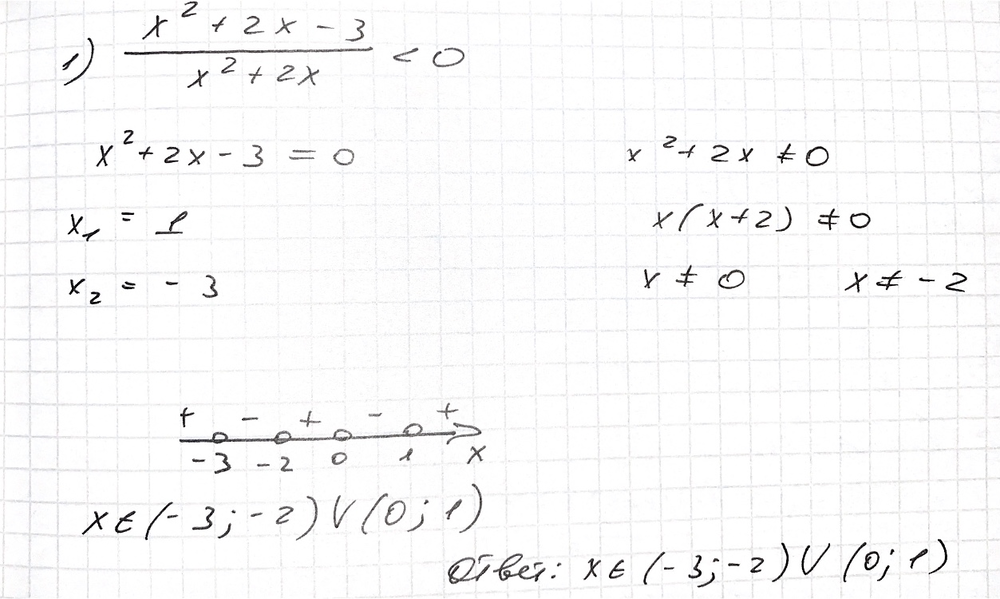 1) (x² + 2x - 3)/(x² + 2x) < 0
x² + 2x - 3 = 0
x² + 2x ≠ 0
x₁ = 1
x(x+2) ≠ 0
x₂ = - 3
x ≠ 0 x ≠ - 2
+ - + - +
-3 -2 0 1 x
x ∈ (-3; -2) ∪ (0; 1)
Ответ: x ∈ (-3; -2) ∪ (0; 1)